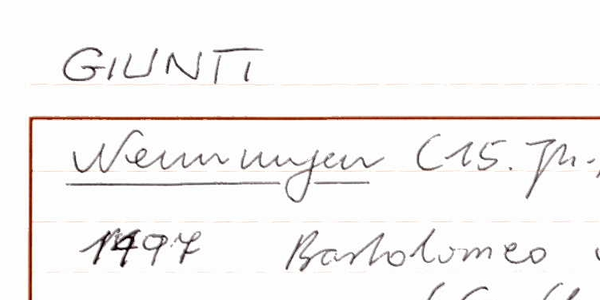 GIUNTI
Nennungen (15. Jh.
1497 Bartolomeo